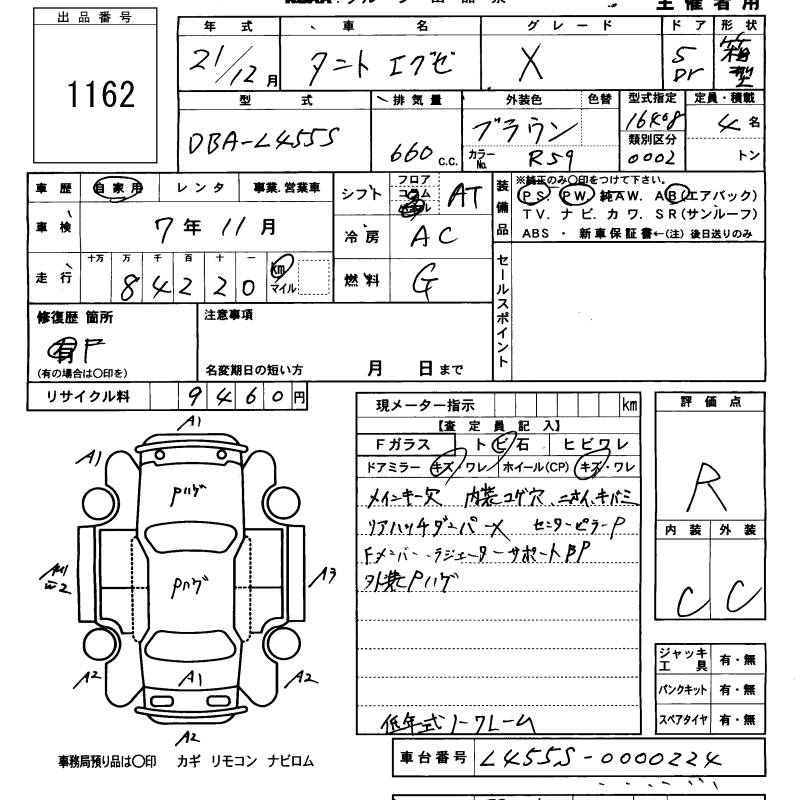 出品番号
1162
年式 車名 グレード ドア 形状
21/12月 タント エグゼ X 5Dr 箱型
型式 排気量 外装色 色替 型式指定 定員・積載
DBA-L455S 660 c.c. ブラウン 16408 4名
カラーNo. R59 類別区分 0002 トン
車歴 自家用 レンタ 事業.営業車
車検 7年 11月
走行 十万 万 千 百 十 一
84220 km マイル
シフト フロア コラム AT
冷房 AC
燃料 G
装備品
※純正のみ〇印をつけて下さい。
PS. PW. 純AW. AB(エアバック)
TV. ナビ. カワ. SR(サンルーフ)
ABS ・ 新車保証書←(注) 後日送りのみ
セールスポイント
修復歴 箇所
有 F
(有の場合は〇印を)
注意事項
名変期日の短い方 月 日まで
リサイクル料 9460円
現メーター指示 km
【査定員記入】
Fガラス トビ石 ヒビワレ
ドアミラー キズ・ワレ ホイール(CP) キズ・ワレ
メインキー欠 内装コゲ穴、
リアハッチダンパーX センターピラーP
Fメンバー.ラジエーターサポートBP
外装Pハゲ
低年式ノークレーム
評価点
R
内装 外装
C C
ジャッキ工具 有・無
パンクキット 有・無
スペアタイヤ 有・無
A1
A1
Pハゲ
Pハゲ
A3
A2
A2
A1
A2
事務局預り品は〇印 カギ リモコン ナビロム
車台番号 L455S-0000224